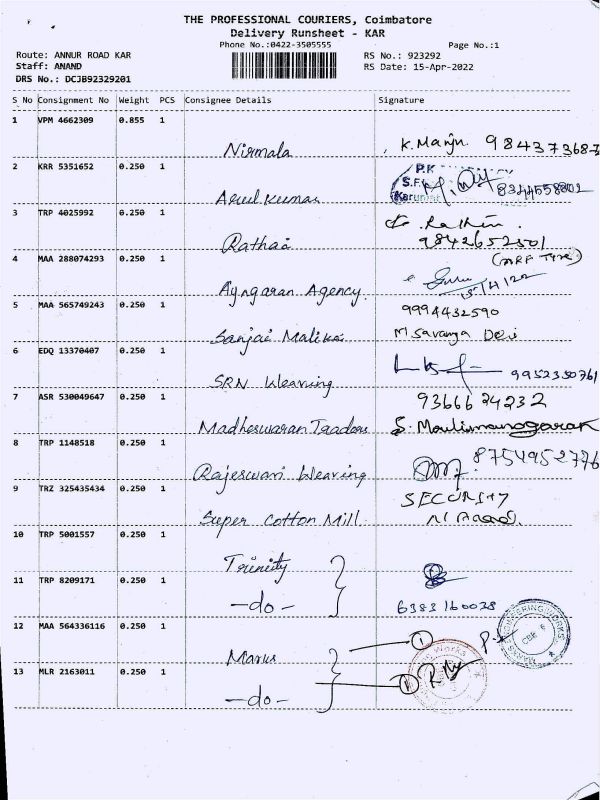 THE PROFESSIONAL COURIERS, Coimbatore
Delivery Runsheet - KAR
Phone No.:0422-3505555 Page No.:1
Route: ANNUR ROAD KAR RS No.: 923292
Staff: ANAND RS Date: 15-Apr-2022
DRS No.: DCJB92329201
S No Consignment No Weight PCS Consignee Details Signature
1 VPM 4662309 0.855 1
Nirmala K. Manju 984373687
2 KRR 5351652 0.250 1
P.K
S.F.
Arul kumar 8344558802
3 TRP 4025992 0.250 1
Rathai 9842652501
4 MAA 288074293 0.250 1
Ayngaran Agency 15/4/22
5 MAA 565749243 0.250 1 9994432590
Sanjai Malika M Saranya Devi
6 EDQ 13370407 0.250 1
SRN Weaving 9952350761
7 ASR 530049647 0.250 1 9366624232
Madheswaran Traders S. Moulimanogaran
8 TRP 1148518 0.250 1 8754952776
Rajeswari Weaving
9 TRZ 325435434 0.250 1 SECURITY
Super Cotton Mill
10 TRP 5001557 0.250 1
Trinity
11 TRP 8209171 0.250 1
-do- 6383160028
12 MAA 564336116 0.250 1 MARKS ENGINEERING WORKS
CBE 6
1
Marks Works
13 MLR 2163011 0.250 1
-do-